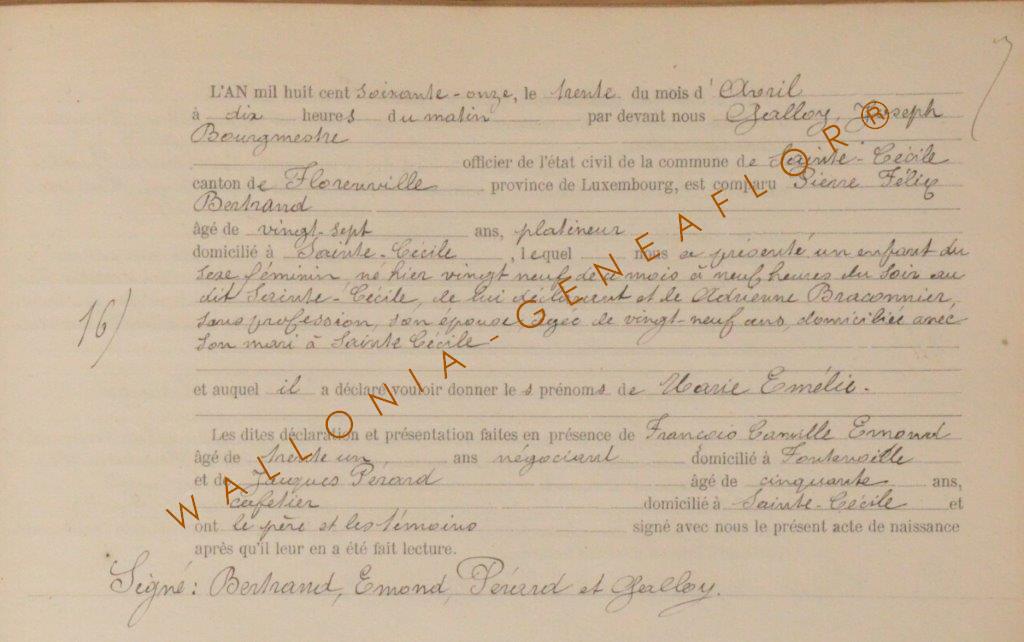 L'AN mil huit cent soixante-onze, le trente du mois d'Avril
à dix heures du matin par devant nous Galloy, Joseph
Bourgmestre
officier de l'état civil de la commune de Sainte-Cécile
canton de Florenville province de Luxembourg, est comparu Pierre Félix
Bertrand
âgé de vingt-sept ans, platineur
domicilié à Sainte-Cécile, lequel nous a présenté un enfant du
sexe féminin né hier vingt neuf de ce mois à neuf heures du soir au
dit Sainte-Cécile, de lui déclarant et de Adrienne Braconnier,
sans profession, son épouse âgée de vingt-neuf ans, domiciliée avec
16)
son mari à Sainte Cécile
et auquel il a déclaré vouloir donner les prénoms de Marie Emélie.
Les dites déclaration et présentation faites en présence de François Camille Emond
âgé de trente un ans négociant domicilié à Fontenoille
et de Jacques Pérard âgé de cinquante ans,
cafetier domicilié à Sainte-Cécile et
ont le père et les témoins signé avec nous le présent acte de naissance
après qu'il leur en a été fait lecture.
Signé: Bertrand, Emond, Pérard et Galloy.
WALLONIA-GENEAFLOR®